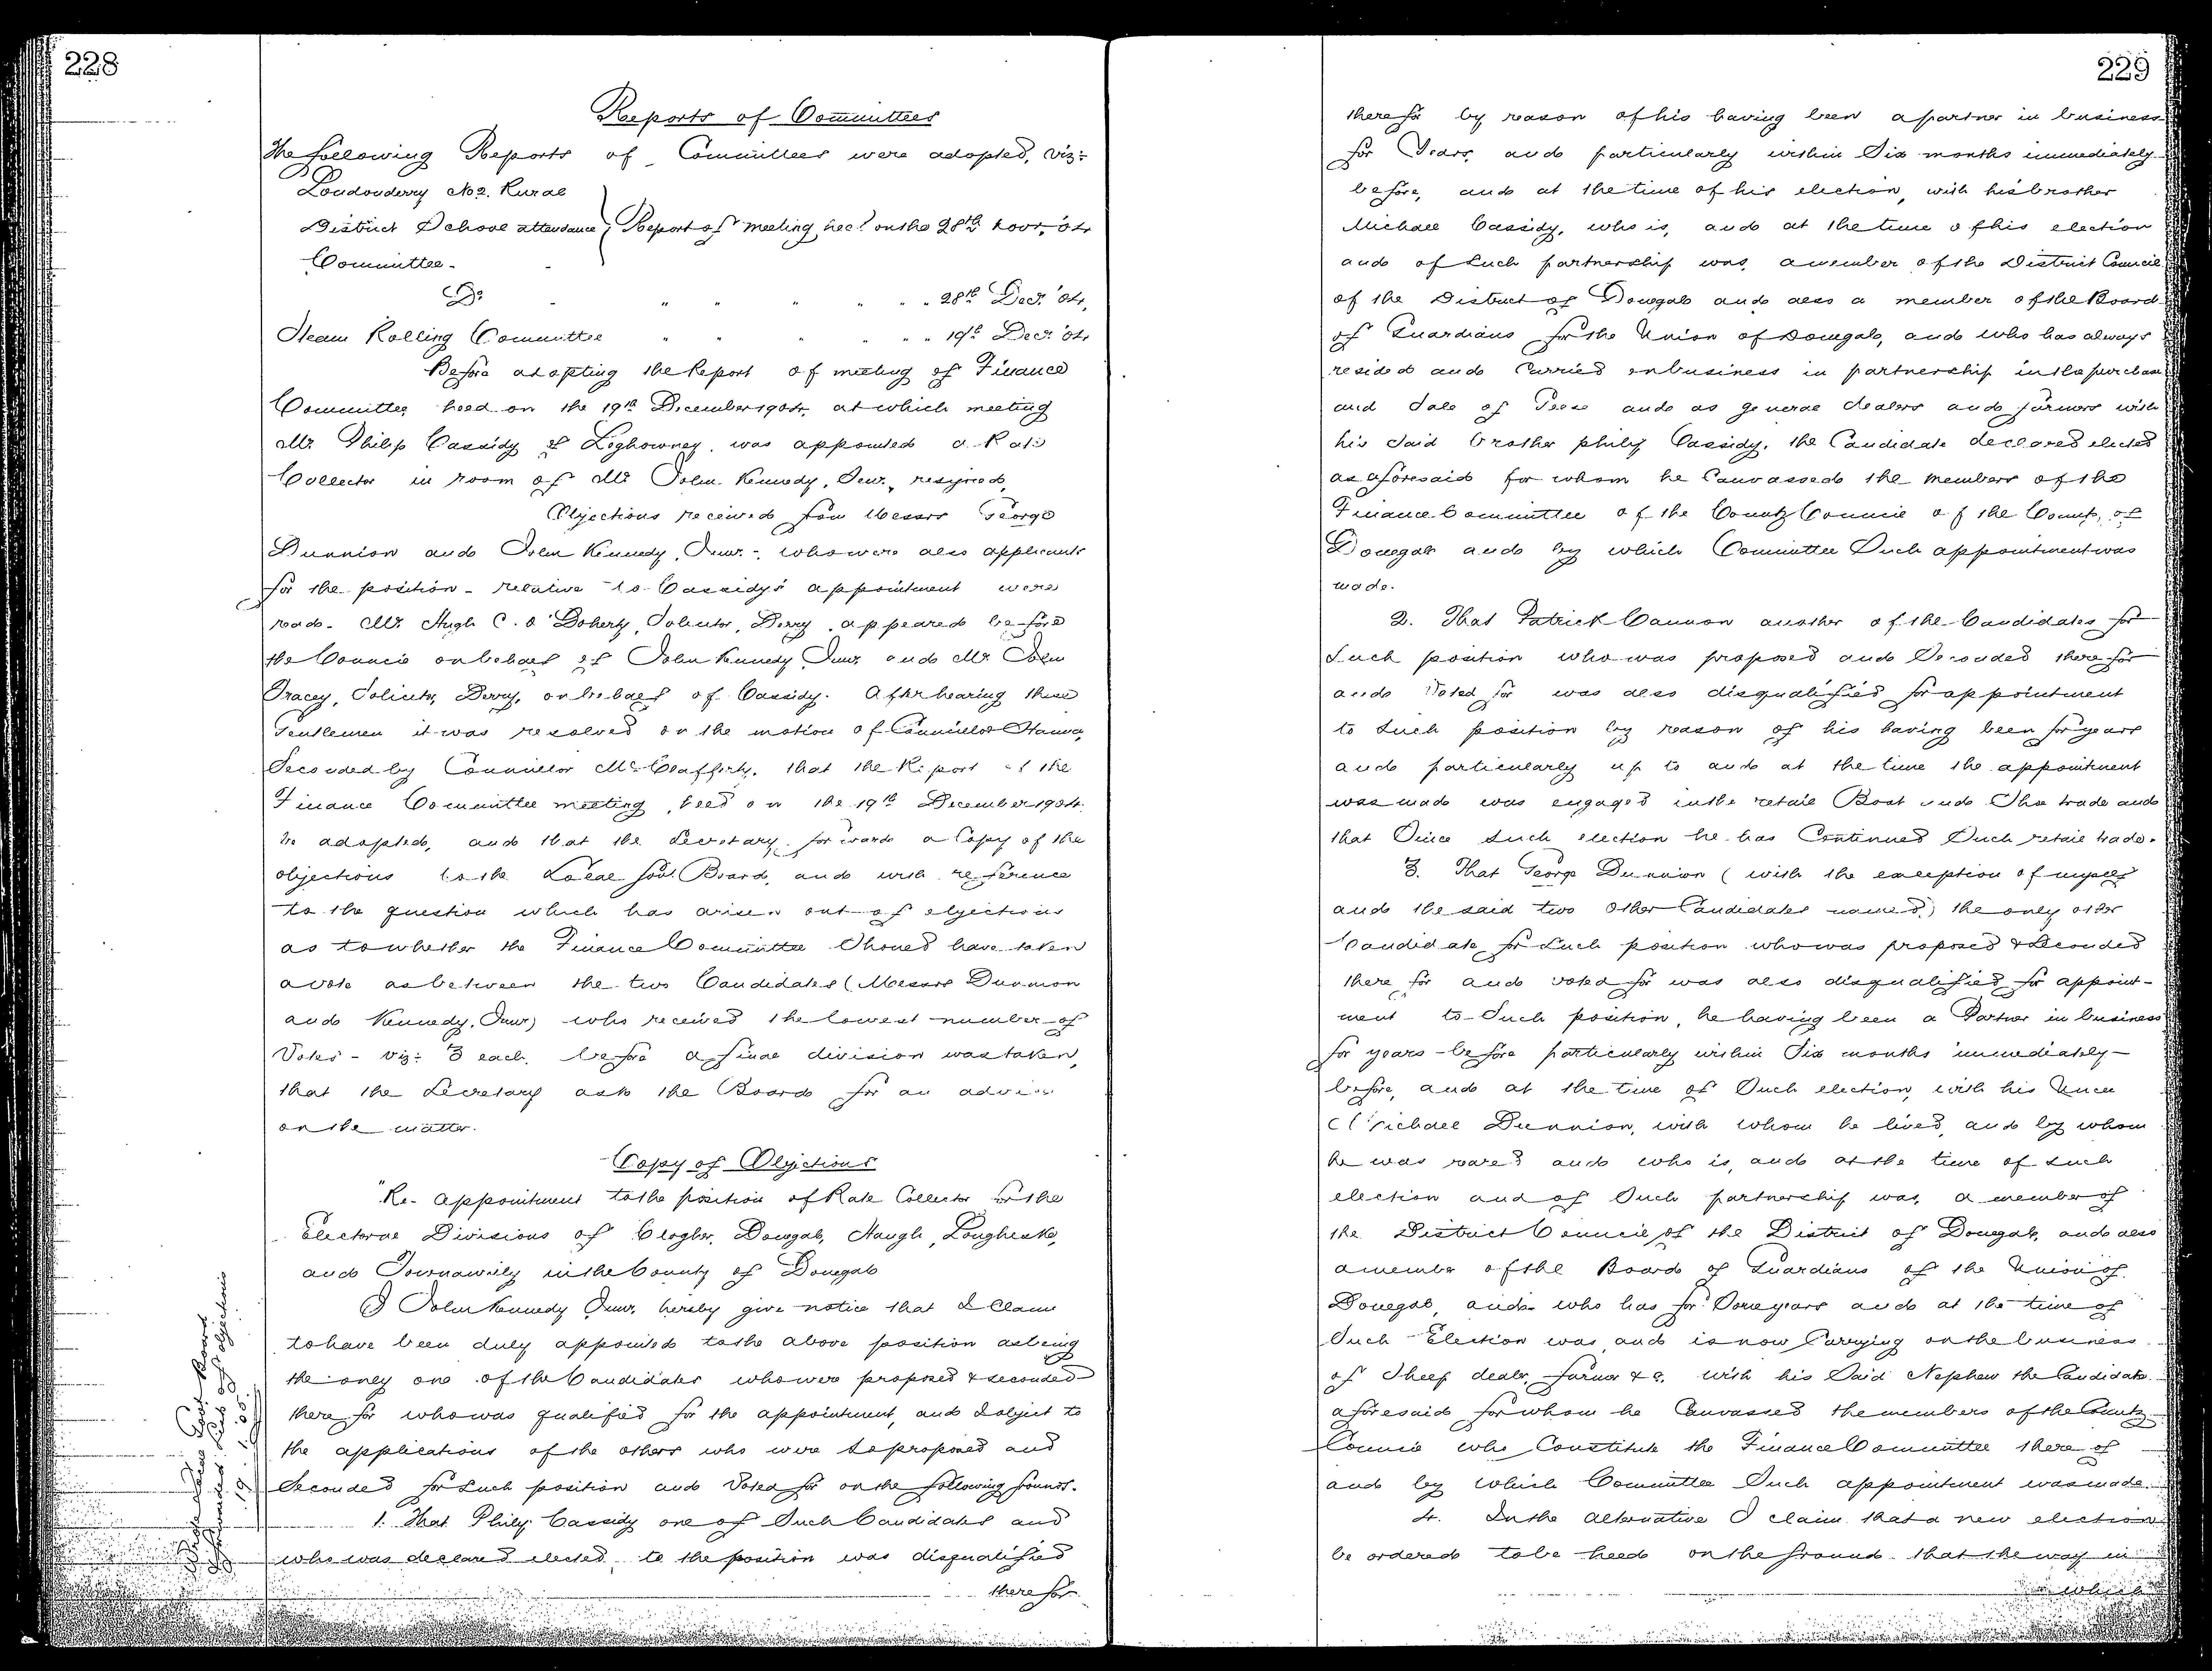 228
Reports of Committees
The following Reports of Committees were adopted, viz:
Londonderry No 2. Rural
District School attendance } Report of meeting held on the 28th Novr, '04
Committee -
Do " " " " " " 28th Decr. '04,
Steam Rolling Committee " " " " " " 19th Decr. '04,
Before adopting the Report of meeting of Finance
Committee held on the 19th December 1904, at which meeting
Mr Philip Cassidy of Loghowney, was appointed a Rate
Collector in room of Mr John Kennedy, Senr., resigned,
Objections received from Messrs George
Dunnion and John Kennedy, Junr., who were also applicants
for the position - relative to Cassidy's appointment were
read. Mr. Hugh C. O'Doherty, Solicitor, Derry, appeared before
the Council on behalf of John Kennedy Junr. and Mr. John
Tracey, Solicitor, Derry, on behalf of Cassidy. After hearing these
Gentlemen it was resolved on the motion of Councillor Hanna,
Seconded by Councillor McClafferty, that the Report of the
Finance Committee meeting, held on the 19th December 1904.
be adopted, and that the Secretary forward a Copy of the
objections to the Local Govt. Board, and with reference
to the question which has arisen out of objections
as to whether the Finance Committee Should have taken
a vote as between the two Candidates (Messrs Dunnion
and Kennedy, Junr) who received the lowest number of
Votes - viz: 3 each, before a final division was taken,
that the Secretary ask the Board for an advice
on the matter.
Copy of Objections
"Re- Appointment to the position of Rate Collector for the
Electoral Divisions of Clogher, Donegal, Haugh, Lougheask,
and Townawilly in the County of Donegal
I John Kennedy Junr. hereby give notice that I Claim
to have been duly appointed to the above position as being
the only one of the Candidates who were proposed & seconded
there for who was qualified for the appointment, and I object to
the applications of the others who were so proposed and
Seconded for Such position and Voted for on the following grounds.
1. That Philip Cassidy one of Such Candidates and
who was declared elected to the position was disqualified
there for
229
there for by reason of his having been a partner in business
for Years, and particularly within Six months immediately
before, and at the time of his election, with his brother
Michael Cassidy, who is, and at the time of his election
and of Such partnership was, a member of the District Council
of the District of Donegal and also a member of the Board
of Guardians for the Union of Donegal, and who has always
resided and Carried on business in partnership in the purchase
and Sale of Geese and as general dealers and farmers with
his Said brother Philip Cassidy, the Candidate declared elected
as aforesaid for whom he Canvassed the members of the
Finance Committee of the County Council of the County of
Donegal and by which Committee Such appointment was
made.
2. That Patrick Cannon another of the Candidates for
Such position who was proposed and Seconded there for
and Voted for was also disqualified for appointment
to Such position by reason of his having been for years
and particularly up to and at the time the appointment
was made was engaged in the retail Boot and Shoe trade and
that Since Such election he has Continued Such retail trade.
3. That George Dunnion (with the exception of myself
and the said two other Candidates named) the only other
Candidate for Such position who was proposed & Seconded
there for and voted for was also disqualified for appoint-
ment to Such position, he having been a Partner in business
for years - before particularly within Six months immediately -
before, and at the time of Such election, with his Uncle
Michael Dunnion, with whom he lived, and by whom
he was reared and who is, and at the time of Such
election and of Such partnership was, a member of
the District Council of the District of Donegal, and also
a member of the Board of Guardians of the Union of
Donegal, and who has for Some years and at the time of
Such Election was, and is now Carrying on the business
of Sheep dealer, farmer &c. with his Said Nephew the Candidate
aforesaid for whom he Canvassed the members of the County
Council who Constitute the Finance Committee there of
and by which Committee Such appointment was made.
4. In the alternative I claim that a new election
be ordered to be held on the ground that the way in
which